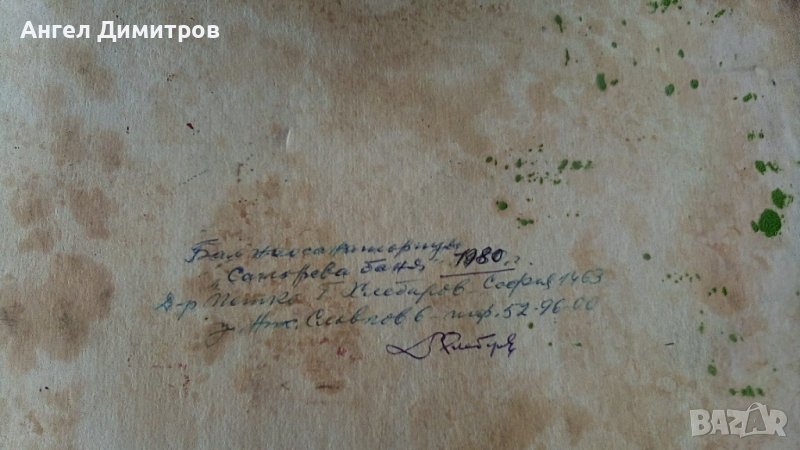 Ангел Димитров
Балнеосанаториум
"Сапарева баня" 1980 г.
Д-р Петко Г. Хлебаров София 1463
ул. Ант. Славков 6 тлф. 52-96-00
Хлебаров
BAZAR